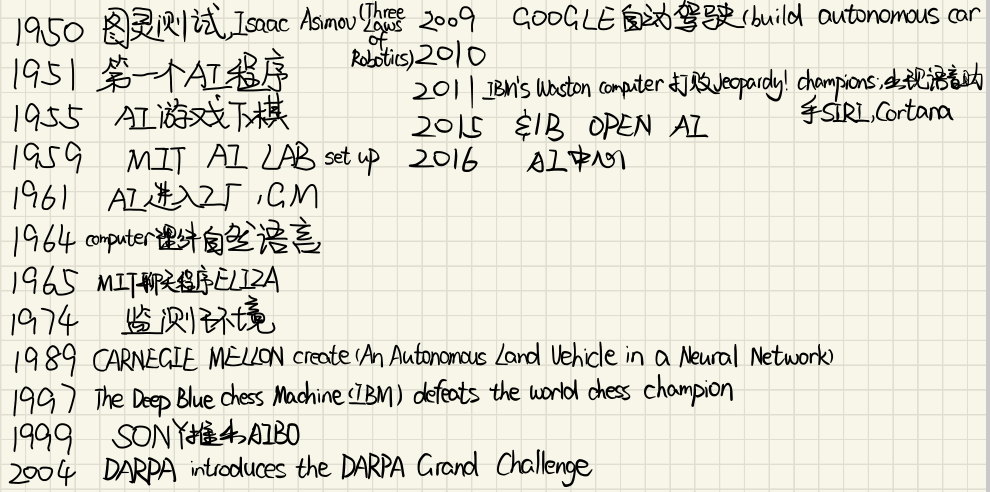 1950 图灵测试,Isaac Asimov(Three Laws of Robotics)
1951 第一个AI程序
1955 AI游戏下棋
1959 MIT AI LAB set up
1961 AI进入工厂,GM
1964 computer理解自然语言
1965 MIT聊天程序ELIZA
1974 监测环境
1989 CARNEGIE MELLON create(An Autonomous Land Vehicle in a Neural Network)
1997 The Deep Blue chess Machine(IBM) defeats the world chess champion
1999 SONY推出AIBO
2004 DARPA introduces the DARPA Grand Challenge
2009 GOOGLE自动驾驶(build autonomous car
2010
2011 IBM's Waston computer 打败Jeopardy! champions;出现语音助
手SIRI,Cortana
2015 创立 OPEN AI
2016 AI